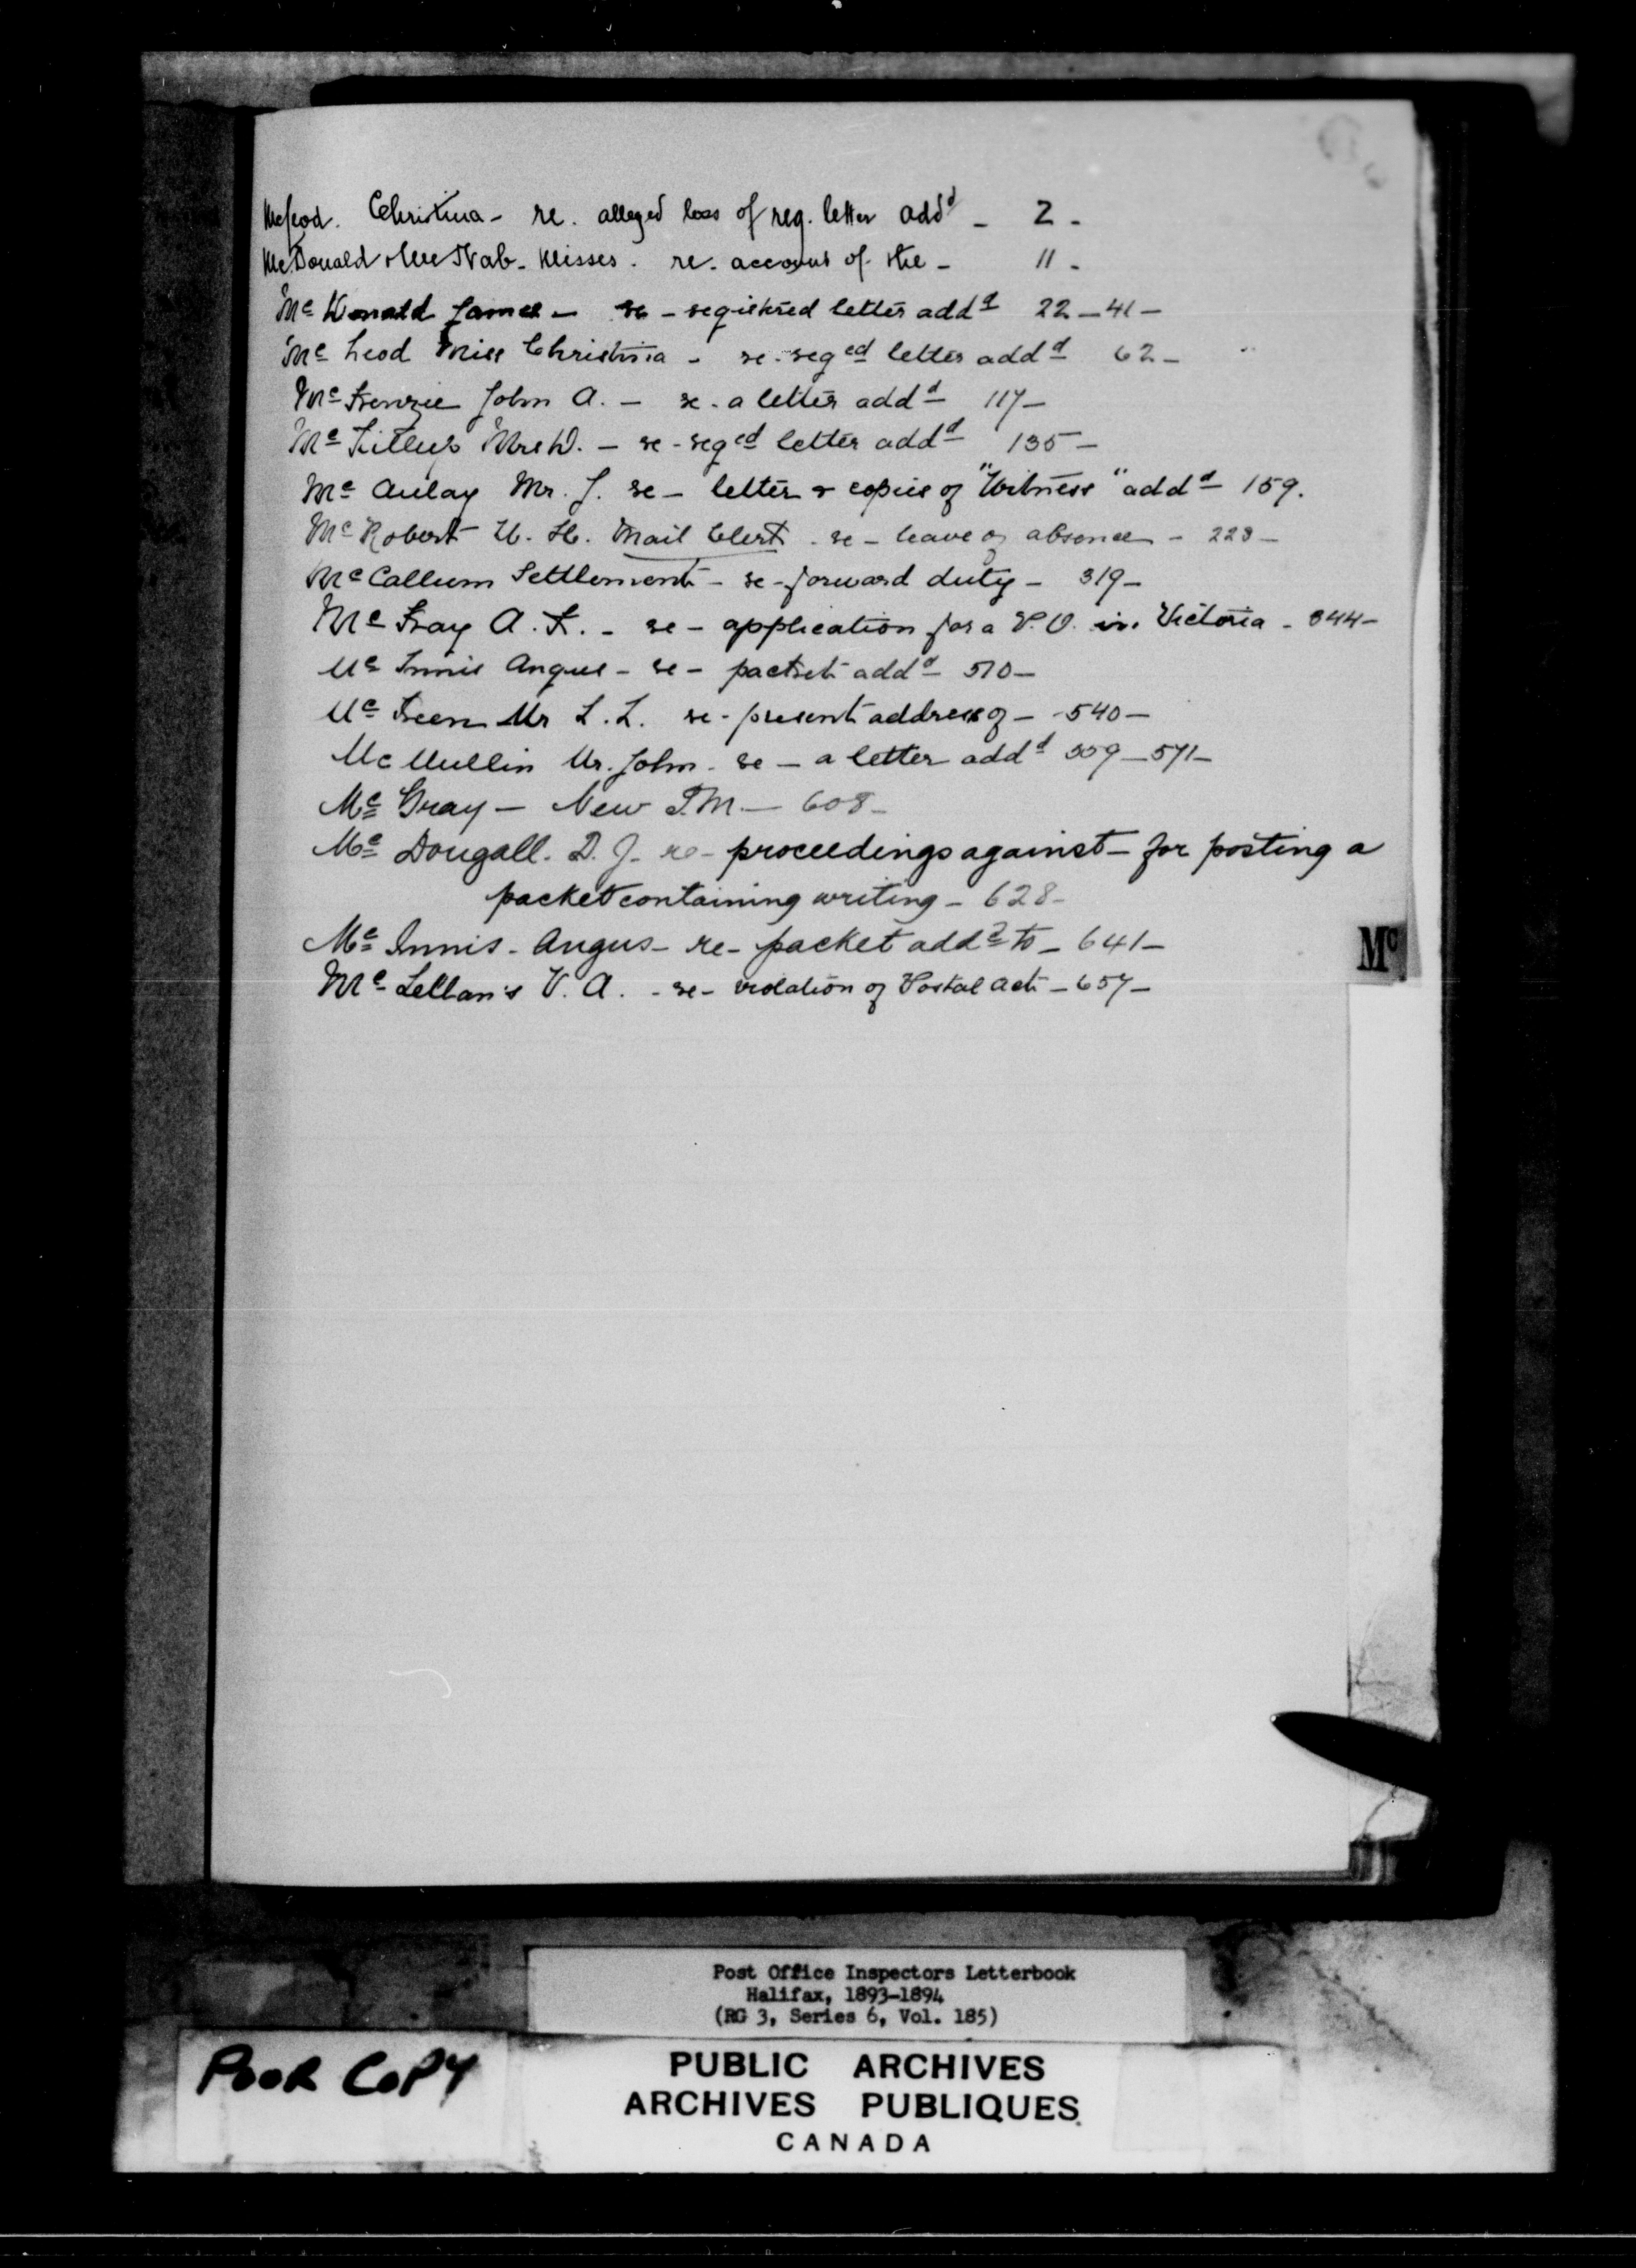 McLeod. Christina - re. alleged loss of reg. letter add^d - 2 -
McDonald & McNab - Misses. re. account of the - 11 -
Mc Donald James - re - registered letter add^d 22 - 41 -
Mc Leod Miss Christina - re - reg^ed letter add^d 62 -
Mc Kenzie John A. - re - a letter add^d 117 -
Mc Mrs D. - re - reg^ed letter add^d 135 -
Mc Aulay Mr. J. re - letter & copies of "Witness" add^d 159.
Mc Robert H. Mail Clerk - re - leave of absence - 223 -
McCallum Settlement - re - forward duty - 319 -
Mc Kay A. K. - re - application for a P.O. in Victoria - 344 -
Mc Innis Angus - re - packet add^d 510 -
Mc Keen Mr L. L. re - present address of - 540 -
Mc Mullin Mr. John - re - a letter add^d 559 - 571 -
Mc Gray - New P.M. - 608 -
Mc Dougall. D. J. re - proceedings against - for posting a
packet containing writing - 628 -
Mc Innis - Angus - re - packet add^d to - 641 -
Mc Lellan's V. A. - re - violation of Postal Act - 657 -
Mc
Post Office Inspectors Letterbook
Halifax, 1893-1894
(RG 3, Series 6, Vol. 185)
POOR COPY
PUBLIC ARCHIVES
ARCHIVES PUBLIQUES
CANADA